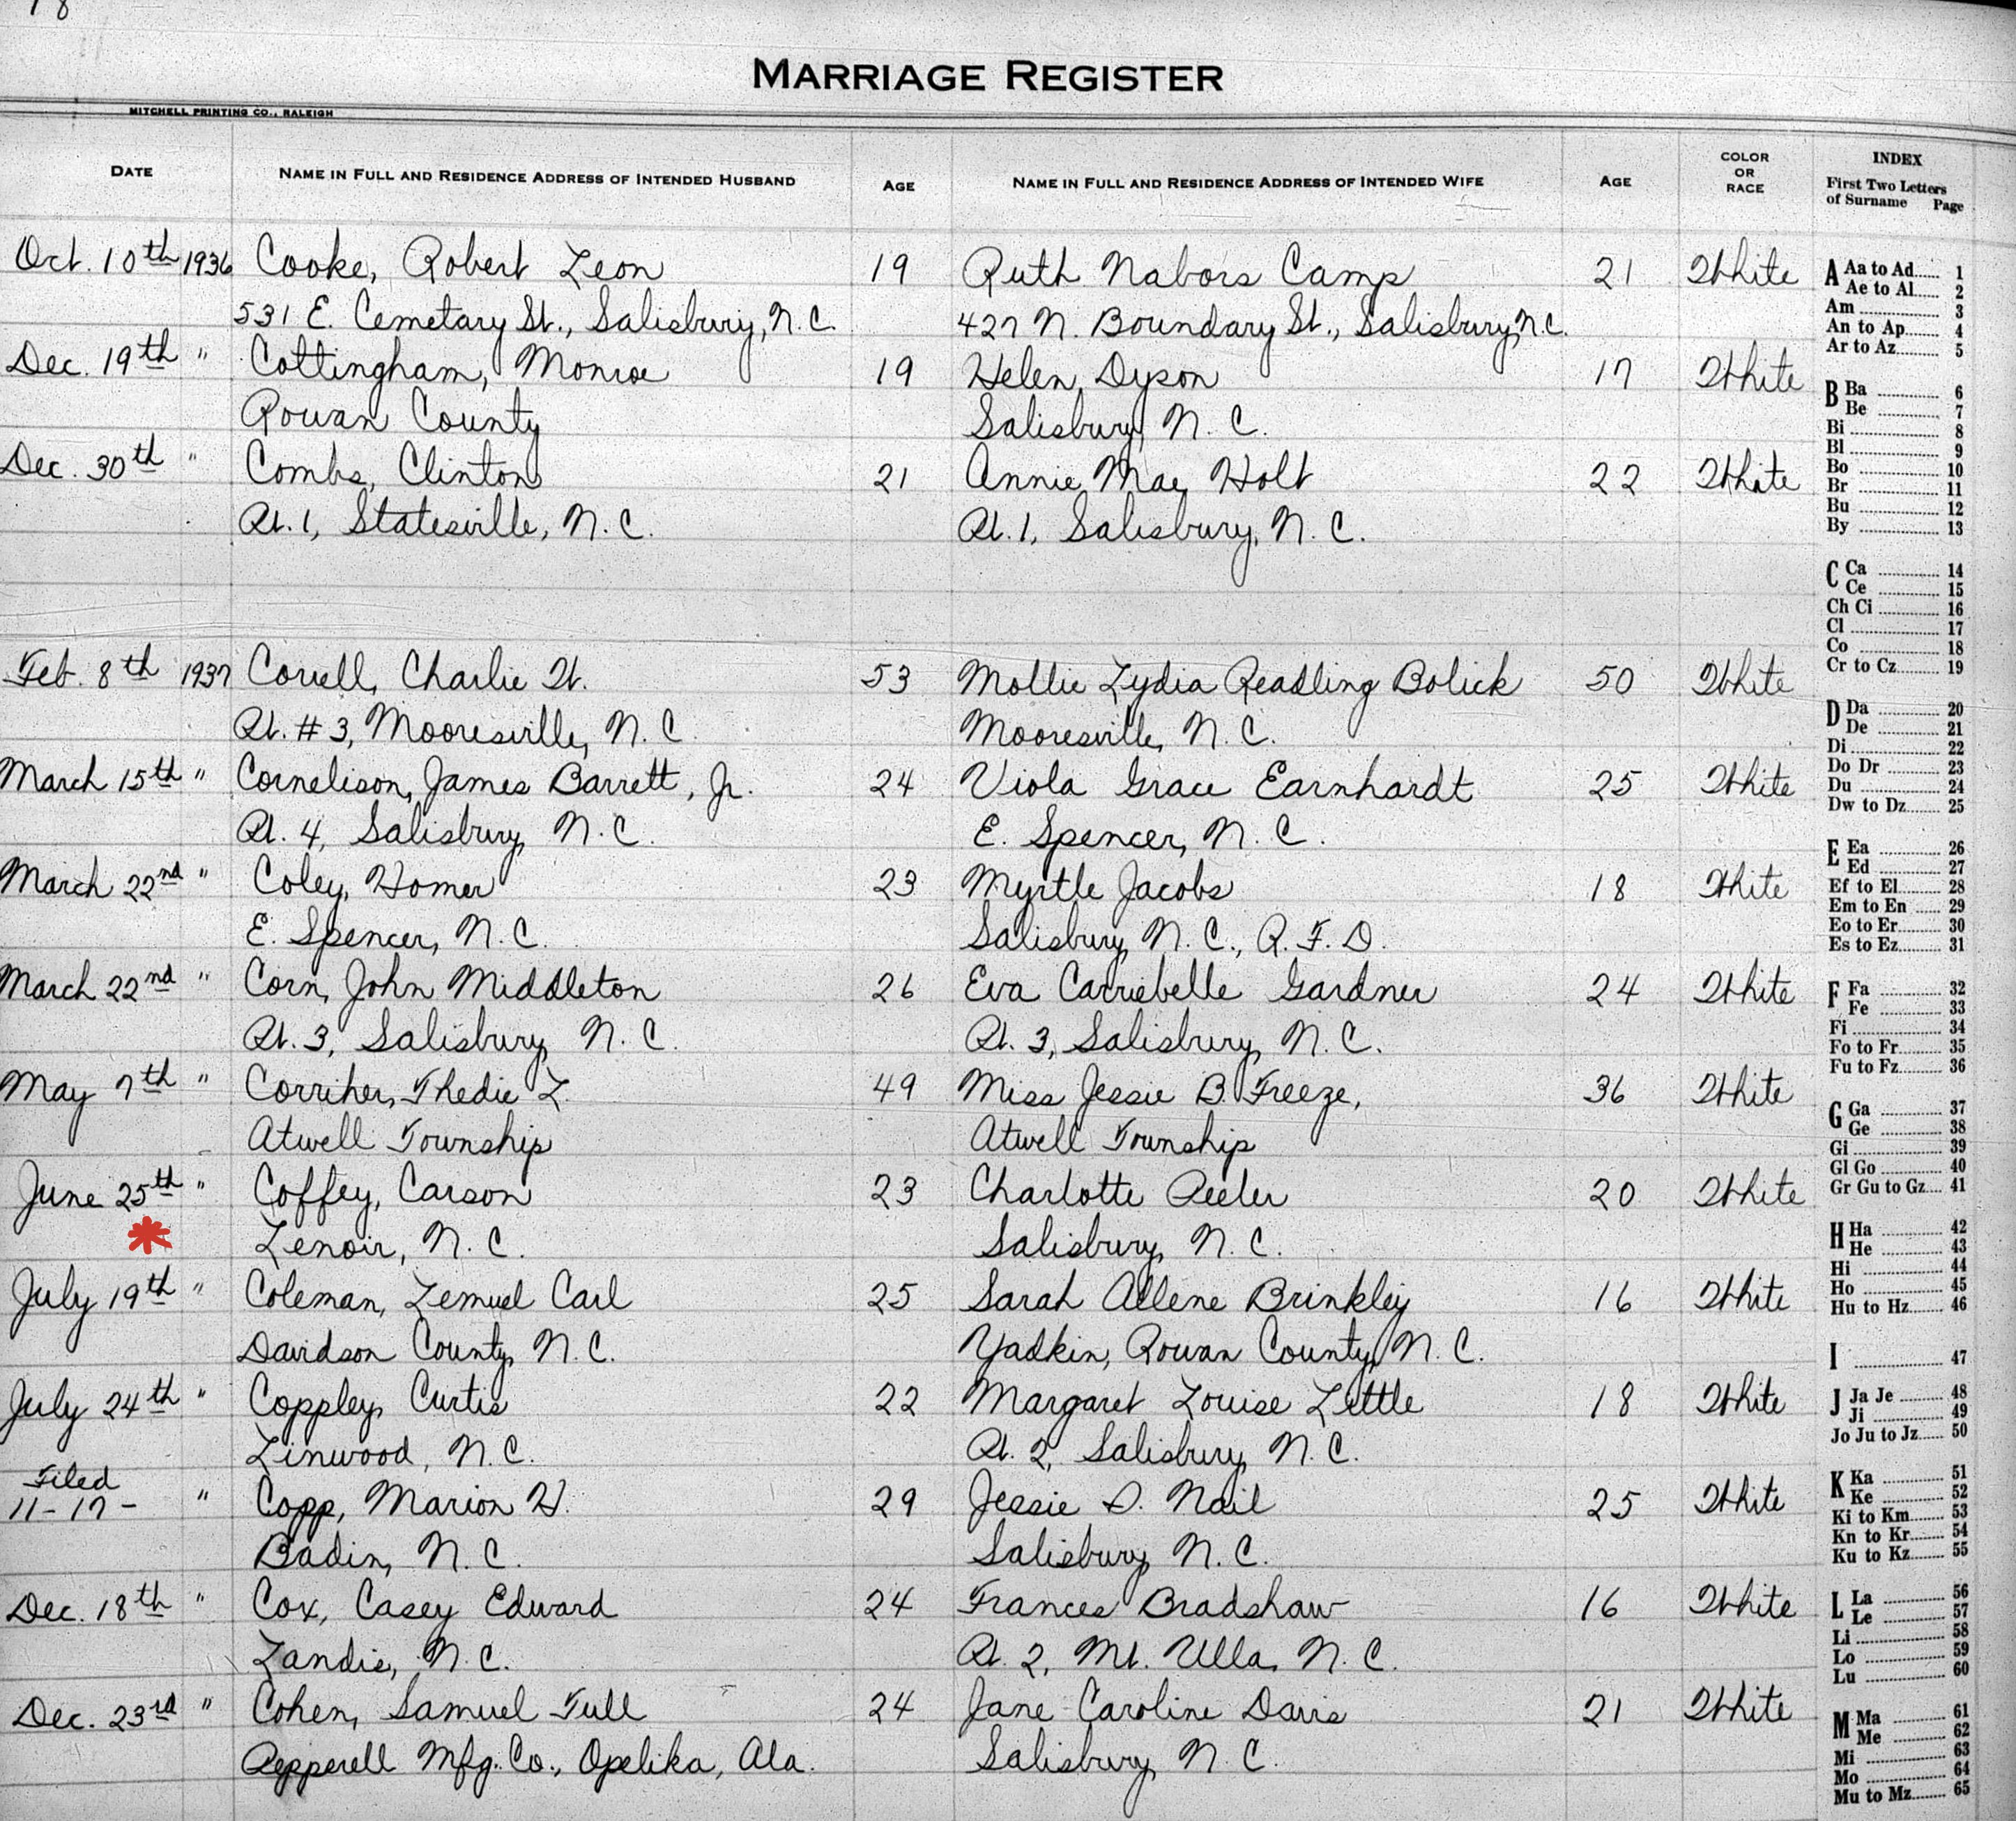 18
MARRIAGE REGISTER
MITCHELL PRINTING CO., RALEIGH
DATE NAME IN FULL AND RESIDENCE ADDRESS OF INTENDED HUSBAND AGE NAME IN FULL AND RESIDENCE ADDRESS OF INTENDED WIFE AGE COLOR OR RACE
Oct. 10th 1936 Cooke, Robert Leon 19 Ruth Nabors Camp 21 White
531 E. Cemetary St., Salisbury, N.C. 427 N. Boundary St., Salisbury, N.C.
Dec. 19th " Cottingham, Monroe 19 Helen Dyson 17 White
Rowan County Salisbury, N. C.
Dec. 30th " Combs, Clinton 21 Annie Mae Holt 22 White
Rt. 1, Statesville, N. C. Rt. 1, Salisbury, N. C.
Feb. 8th 1937 Correll, Charlie W. 53 Mollie Lydia Readling Bolick 50 White
Rt. #3, Mooresville, N. C. Mooresville, N. C.
March 15th " Cornelison, James Barrett, Jr. 24 Viola Grace Earnhardt 25 White
Rt. 4, Salisbury, N. C. E. Spencer, N. C.
March 22nd " Coley, Homer 23 Myrtle Jacobs 18 White
E. Spencer, N. C. Salisbury, N. C., R. F. D.
March 22nd " Corn, John Middleton 26 Eva Carriebelle Gardner 24 White
Rt. 3, Salisbury, N. C. Rt. 3, Salisbury, N. C.
May 7th " Corriher, Thedie L. 49 Miss Jessie B. Freeze, 36 White
Atwell Township Atwell Township
June 25th " Coffey, Carson 23 Charlotte Peeler 20 White
Lenoir, N. C. Salisbury, N. C.
July 19th " Coleman, Lemuel Carl 25 Sarah Allene Brinkley 16 White
Davidson County, N. C. Yadkin, Rowan County, N. C.
July 24th " Coppley, Curtis 22 Margaret Louise Little 18 White
Linwood, N. C. Rt. 2, Salisbury, N. C.
Filed
11-17- " Copp, Marion H. 29 Jessie D. Nail 25 White
Badin, N. C. Salisbury, N. C.
Dec. 18th " Cox, Casey Edward 24 Frances Bradshaw 16 White
Landis, N. C. Rt. 2, Mt. Ulla, N. C.
Dec. 23rd " Cohen, Samuel Tull 24 Jane Caroline Davis 21 White
Pepperell Mfg. Co., Opelika, Ala. Salisbury, N. C.
INDEX
First Two Letters
of Surname Page
A Aa to Ad 1
Ae to Al 2
Am 3
An to Ap 4
Ar to Az 5
B Ba 6
Be 7
Bi 8
Bl 9
Bo 10
Br 11
Bu 12
By 13
C Ca 14
Ce 15
Ch Ci 16
Cl 17
Co 18
Cr to Cz 19
D Da 20
De 21
Di 22
Do Dr 23
Du 24
Dw to Dz 25
E Ea 26
Ed 27
Ef to El 28
Em to En 29
Eo to Er 30
Es to Ez 31
F Fa 32
Fe 33
Fi 34
Fo to Fr 35
Fu to Fz 36
G Ga 37
Ge 38
Gi 39
Gl Go 40
Gr Gu to Gz 41
H Ha 42
He 43
Hi 44
Ho 45
Hu to Hz 46
I 47
J Ja Je 48
Ji 49
Jo Ju to Jz 50
K Ka 51
Ke 52
Ki to Km 53
Kn to Kr 54
Ku to Kz 55
L La 56
Le 57
Li 58
Lo 59
Lu 60
M Ma 61
Me 62
Mi 63
Mo 64
Mu to Mz 65